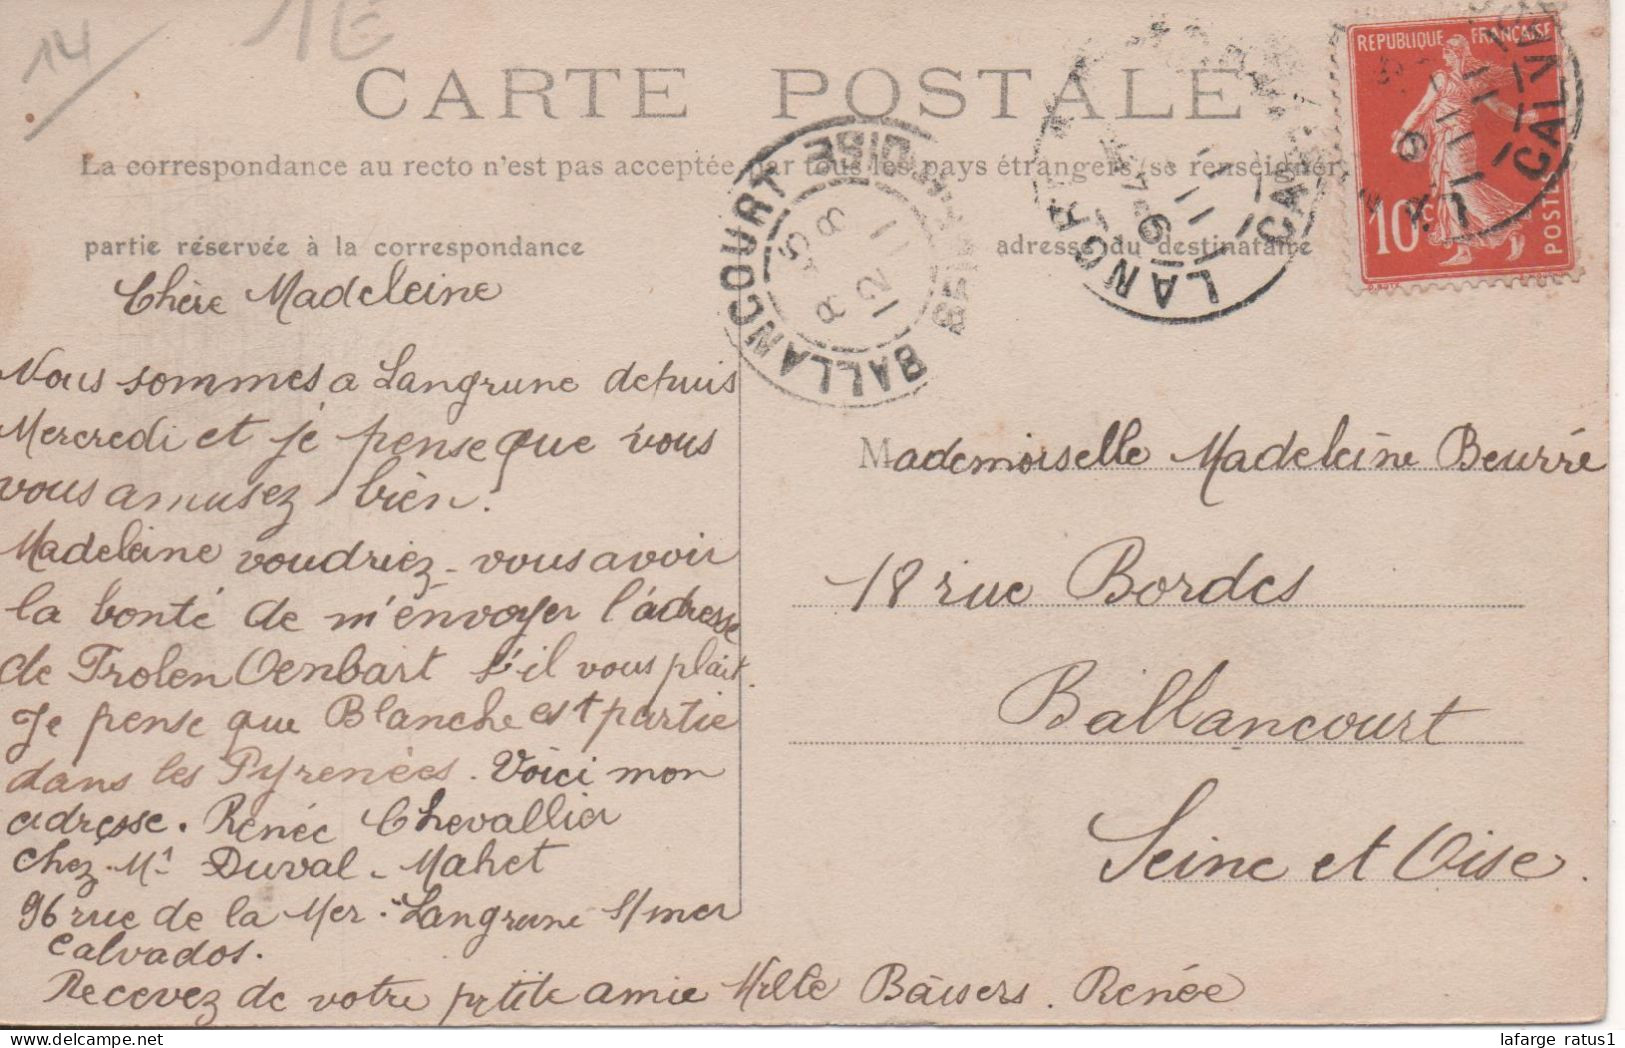 14
1E
CARTE POSTALE
La correspondance au recto n'est pas acceptée par tous les pays étrangers (se renseigner
partie réservée à la correspondance
adresse du destinataire
REPUBLIQUE FRANÇAISE
10c
POSTES
BALLANCOURT
8-11
12
LANGRUNE
CALVADOS
Chère Madeleine
Nous sommes a Langrune depuis
Mercredi et je pense que vous
vous amusez bien.
Madeleine voudriez-vous avoir
la bonté de m'envoyer l'adresse
de s'il vous plait.
Je pense que Blanche est partie
dans les Pyrenées. Voici mon
adresse. Renée Chevallier
chez Mr Duval-Mahet
96 rue de la Mer. Langrune s/mer
Calvados.
Recevez de votre petite amie Mille Baisers. Renée
Mademoiselle Madeleine Beurré
18 rue Bordes
Ballancourt
Seine et Oise.
lafarge ratus1